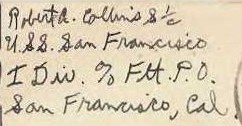 Robert A. Collins S 1/c
U.S.S. San Francisco
I Div. % F.H.P.O.
San Francisco, Cal.